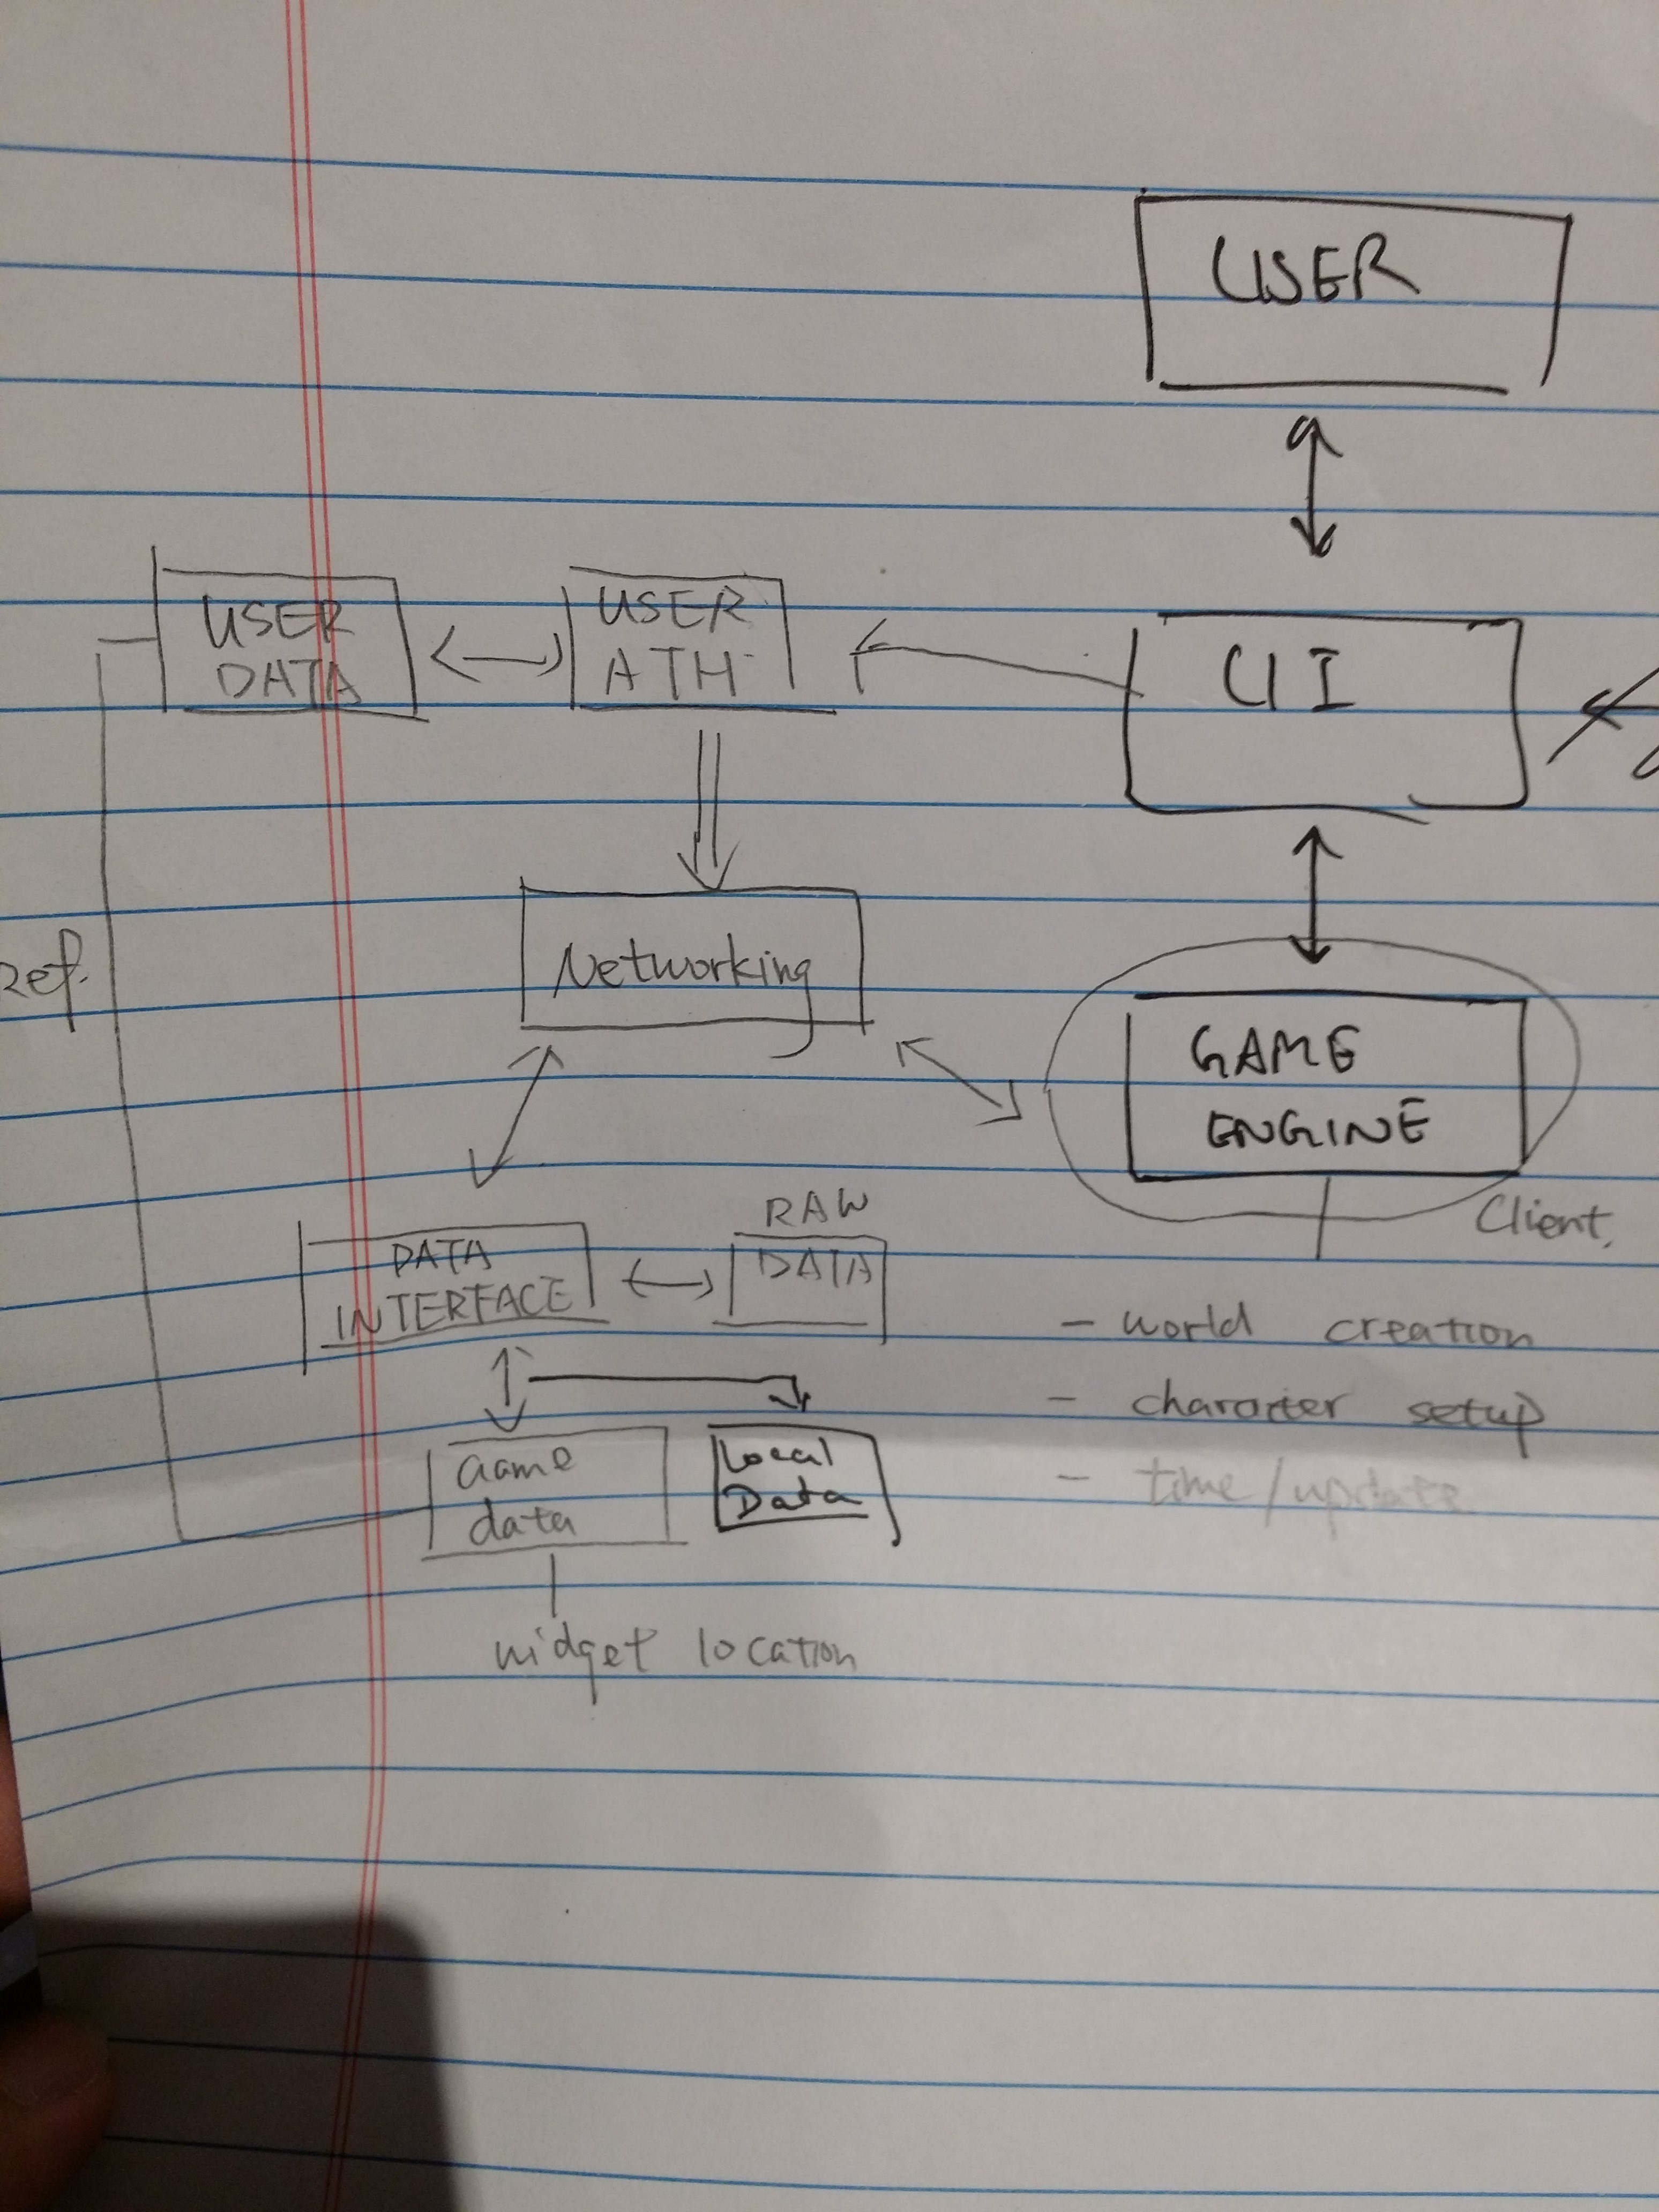 USER
USER
DATA
USER
ATH
UI
Networking
ref.
GAME
ENGINE
Client.
RAW
DATA
DATA
INTERFACE
- world creation
- character setup
- time/update
Game
data
Local
Data
widget location